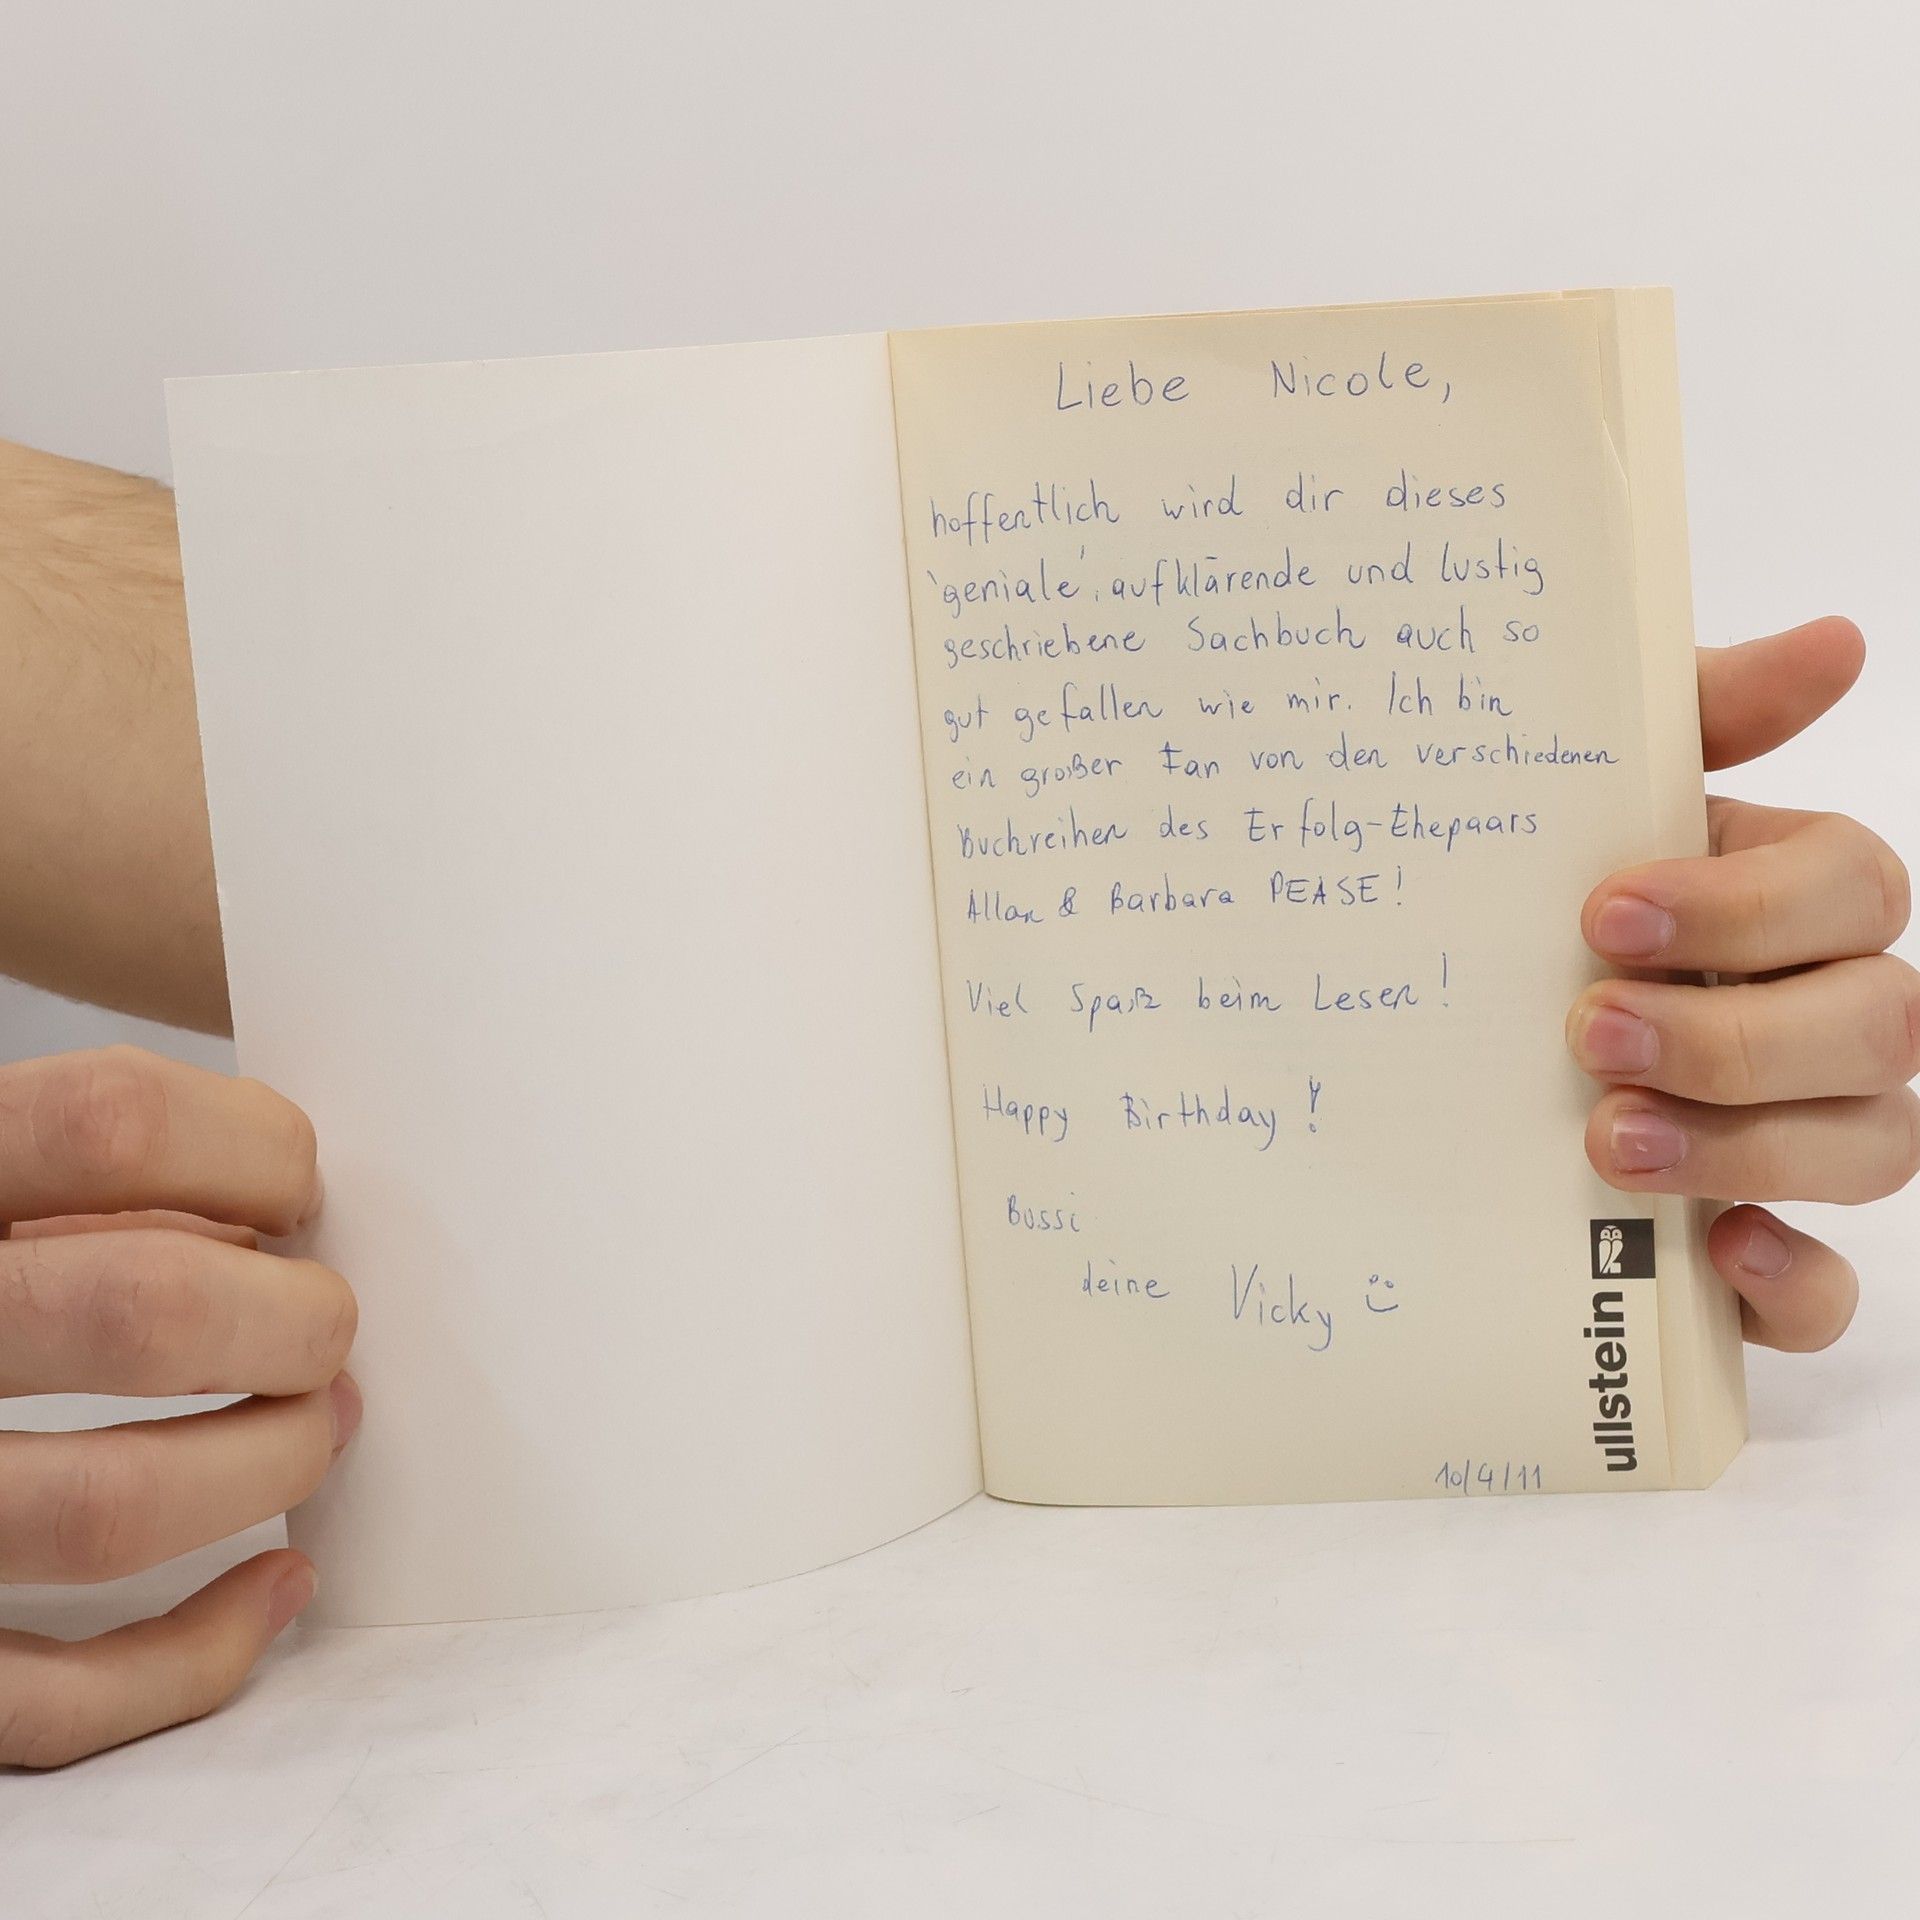 Liebe Nicole,
hoffentlich wird dir dieses
'geniale', aufklärende und lustig
geschriebene Sachbuch auch so
gut gefallen wie mir. Ich bin
ein großer Fan von den verschiedenen
Buchreihen des Erfolg-Ehepaars
Allan & Barbara PEASE!
Viel Spaß beim Lesen!
Happy Birthday!
Bussi
deine Vicky
10/4/11
ullstein